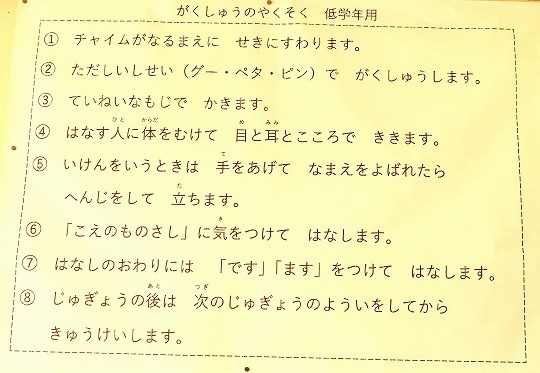 がくしゅうのやくそく　低学年用
① チャイムがなるまえに　せきにすわります。
② ただしいしせい（グー・ペタ・ピン）で　がくしゅうします。
③ ていねいなもじで　かきます。
④ はなす人に体をむけて　目と耳とこころで　ききます。
⑤ いけんをいうときは　手をあげて　なまえをよばれたら
へんじをして　立ちます。
⑥ 「こえのものさし」に気をつけて　はなします。
⑦ はなしのおわりには　「です」「ます」をつけて　はなします。
⑧ じゅぎょうの後は　次のじゅぎょうのよういをしてから
きゅうけいします。